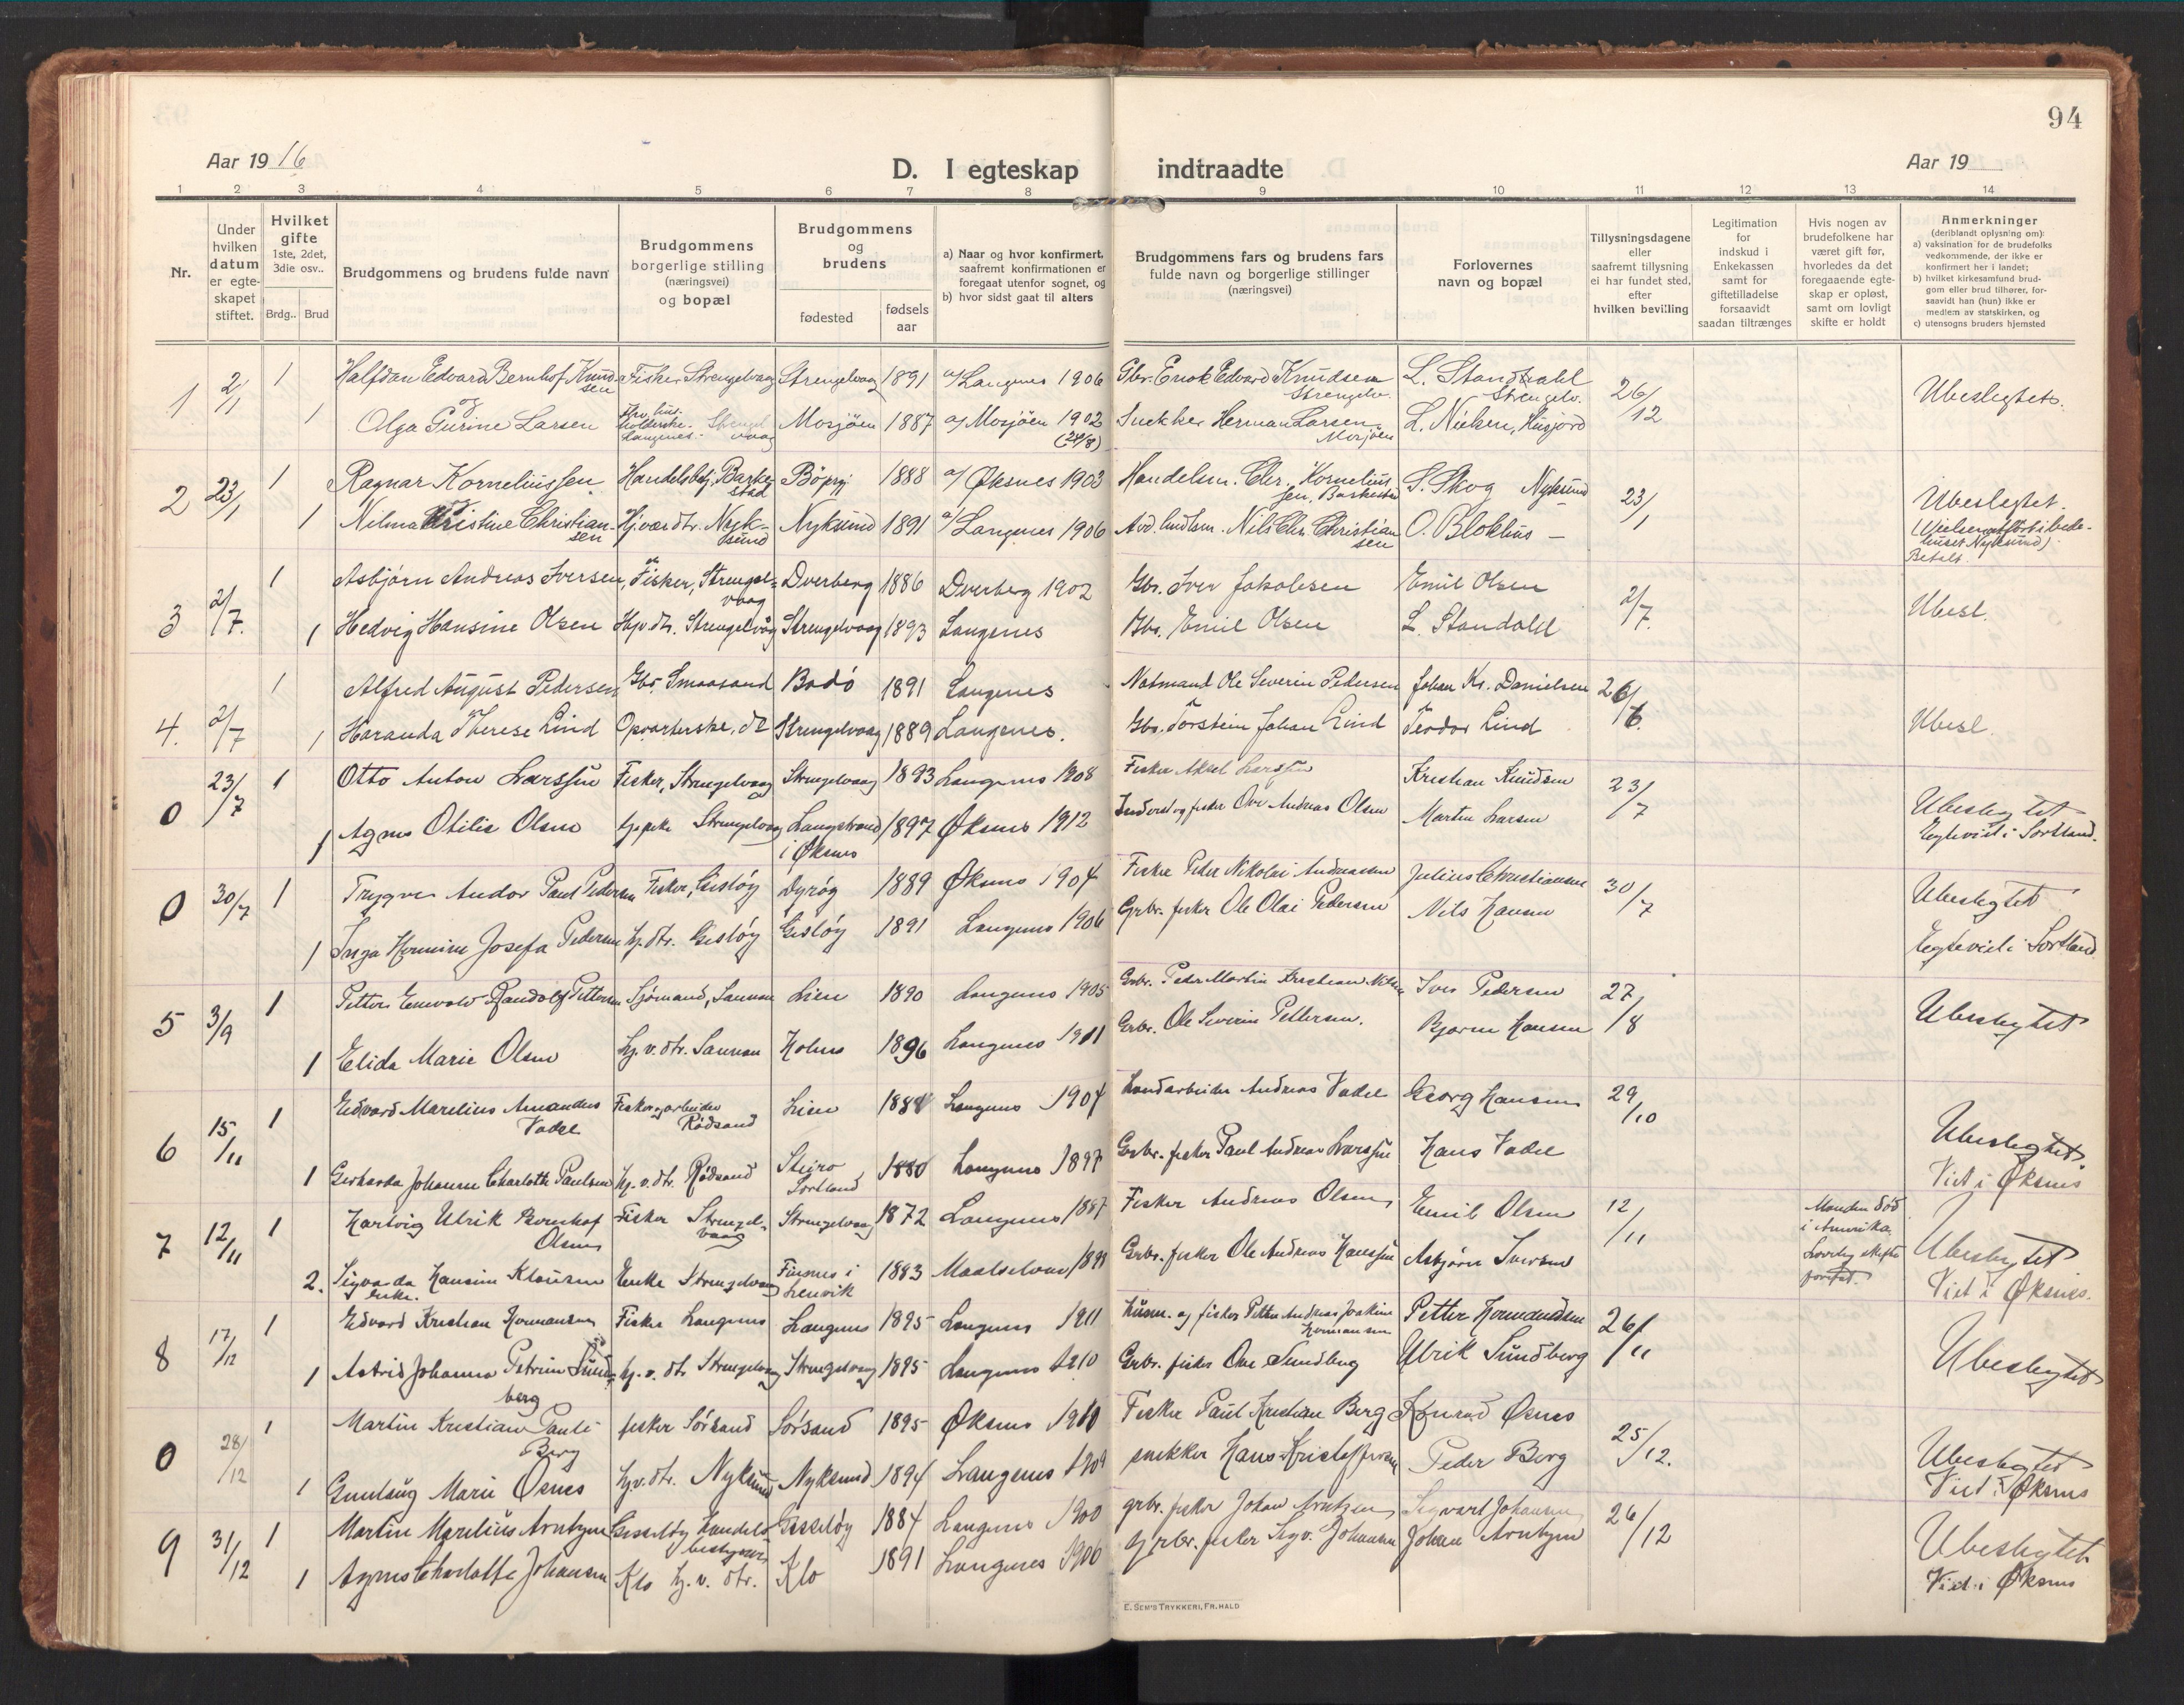 94
Aar 19 16
D. I egteskap indtraadte
Aar 19
1 2 3 4 5 6 7 8 9 10 11 12 13 14
Nr.
Under hvilken datum er egteskapet stiftet.
Hvilket gifte 1ste, 2det, 3die osv..
Brdg.. Brud
Brudgommens og brudens fulde navn
Brudgommens borgerlige stilling (næringsvei) og bopæl
Brudgommens og brudens
fødested
fødsels aar
a) Naar og hvor konfirmert, saafremt konfirmationen er foregaat utenfor sognet, og
b) hvor sidst gaat til alters
Brudgommens fars og brudens fars fulde navn og borgerlige stillinger (næringsvei)
Forlovernes navn og bopæl
Tillysningsdagene eller saafremt tillysning ei har fundet sted, efter hvilken bevilling
Legitimation for indskud i Enkekassen samt for giftetilladelse forsaavidt saadan tiltrænges
Hvis nogen av brudefolkene har været gift før, hvorledes da det foregaaende egteskap er opløst, samt om lovligt skifte er holdt
Anmerkninger (deriblandt oplysning om):
a) vaksination for de brudefolks vedkommende, der ikke er konfirmert her i landet;
b) hvilket kirkesamfund brudgom eller brud tilhører, forsaavidt han (hun) ikke er medlem av statskirken, og
c) utensogns bruders hjemsted
1 2/1 1 Halfdan Edvard Bernhof Knudsen Fisker Strengelvaag Strengelvaag 1891 a/ Langnes 1906 Gbr. Enok Edvard Knudsen Strengelv. L. Standahl Strengelv. 26/12 Ubeslegtet.
og
1 Olga Purine Larsen Mosjöen 1887 a/ Mosjöen 1902 (24/8) Snekker Herman Larsen Mosjöen L. Nielsen, Husjord
2 23/1 1 Ragnar Korneliussen Handelsbetj. Barkestad 1888 a/ Øksnes 1903 Handelsm. Chr. Korneliussen, Barkestad S. Skog Nyksund 23/1 Ubeslegtet.
1 Nilma Kristine Christiansen Nyksund Nyksund 1891 a/ Langenes 1906 Nils Chr. Christiansen O. Blokhus –
Nyksund)
3 2/7. 1 Asbjørn Andreas Iversen, Fisker, Strengelvaag Dverberg 1886 Dverberg 1902 Gbr. Iver Jakobsen Emil Olsen 2/7. Ubesl.
1 Hedvig Hansine Olsen Hjv. dtr. Strengelvåg Strengelvaag 1893 Langenes Gbr. Emil Olsen L. Standahl
4. 2/7 1 Alfred August Pedersen Gbr. Smaasand Bodö 1891 Langenes Notmand Ole Severin Pedersen Johan Kr. Danielsen 26/6. Ubesl.
1 Haranda Therese Lind Opvarterske, Strengelvaag 1889 Langenes. Gbr. Torstein Johan Lind Teodor Lind
0 23/7 1 Otto Anton Larssen Fisker, Strengelvaag Strengelvaag 1893 Langenes 1908 Fisker Aksel Larssen Kristian Knudsen 23/7 Ubeslegtet
1 Agnes Otilie Olsen Strengelvaag Langstrand i Øksnes 1897 Øksnes 1912 Inderst og fisker Ove Andreas Olsen Martin Larsen Egteviet i Sortland.
0 30/7 1 Trygve Andor Paul Pedersen Fisker, Gisløy Dyrøy 1889 Øksnes 1904 Fisker Peder Nikolai Andreassen Julius Christiansen 30/7 Ubeslegtet
1 Inga Hermine Josefa Pedersen hj. dtr. Gisløy Gisløy 1891 Langenes 1906 Grbr. fisker Ole Olai Pedersen Nils Hansen Egteviet i Sortland
5 3/9 1 Petter Enevald Randolf Pettersen Sjømand, Lien 1890 Langenes 1905 Grbr. Peder Martin Kristian Nilsen Iver Pedersen 27/8 Ubeslegtet
1 Elida Marie Olsen hj. v. dtr. Holmen 1896 Langenes 1911 Grbr. Ole Severin Pettersen. Bjarne Hansen
6 15/11 1 Edvard Marelius Amandus Vadel Fisker og arbeider Rødsand Lien 1884 Langenes 1904 Landarbeider Andreas Vadel Georg Hansen 29/10 Ubeslegtet.
1 Gerharda Johanne Charlotte Paulsen hj. v. dtr. Rødsand Steiro Sortland 1880 Langenes 1897 Grbr. fisker Paul Andreas Larssen Hans Vadel Viet i Øksnes
7 12/11 1 Hartvig Ulrik Bernhof Olsen Fisker Strengelvaag Strengelvaag 1872 Langenes 1887 Fisker Andreas Olsen Emil Olsen 12/11 Manden død i Amerika Lovlig skifte Ubeslegtet
2. Sigvarda Hansine Klausen enke. Enke Strengelvaag Finnes i Lenvik 1883 Maalselven 1898 Grbr. fisker Ole Andreas Hanssen Asbjørn Iversen Viet i Øksnes.
8 17/12 1 Edvard Kristian Hermansen Fisker Langenes Langenes 1895 Langenes 1911 Husm. og fisker Petter Andreas Joakim Hermansen Petter Hermansen 26/11 Ubeslegtet
1 Astrid Johanna Petrine Sundberg hj. v. dtr Strengelvaag Strengelvaag 1895 Langenes 1910 Grbr. fisker Ove Sundberg Ulrik Sundberg
0 28/12 1 Martin Kristian Pauli Berg fisker Sørsand Sørsand 1895 Øksnes 1910 Fisker Paul Kristian Berg Konrad Osnes 25/12. Ubeslegtet
1 Gunlaug Marie Osnes hj.v. dtr. Nyksund Nyksund 1894 Langenes 1909 snekker Hans Kristoffersen Peder Berg Viet i Øksnes
9 31/12 1 Martin Marelius Arntzen Gisseløy Handelsbestyrer Gisseløy 1884 Langenes 1900 grbr. fisker Johan Arntzen Sigvart Johansen 26/12 Ubeslegtet
1 Agnes Charlotte Johansen Klo hj. v. dtr. Klo 1891 Langenes 1906 grbr. fisker Sigv. Johansen Johan Arntzen Viet i Øksnes
E. SEM'S TRYKKERI, FR.HALD